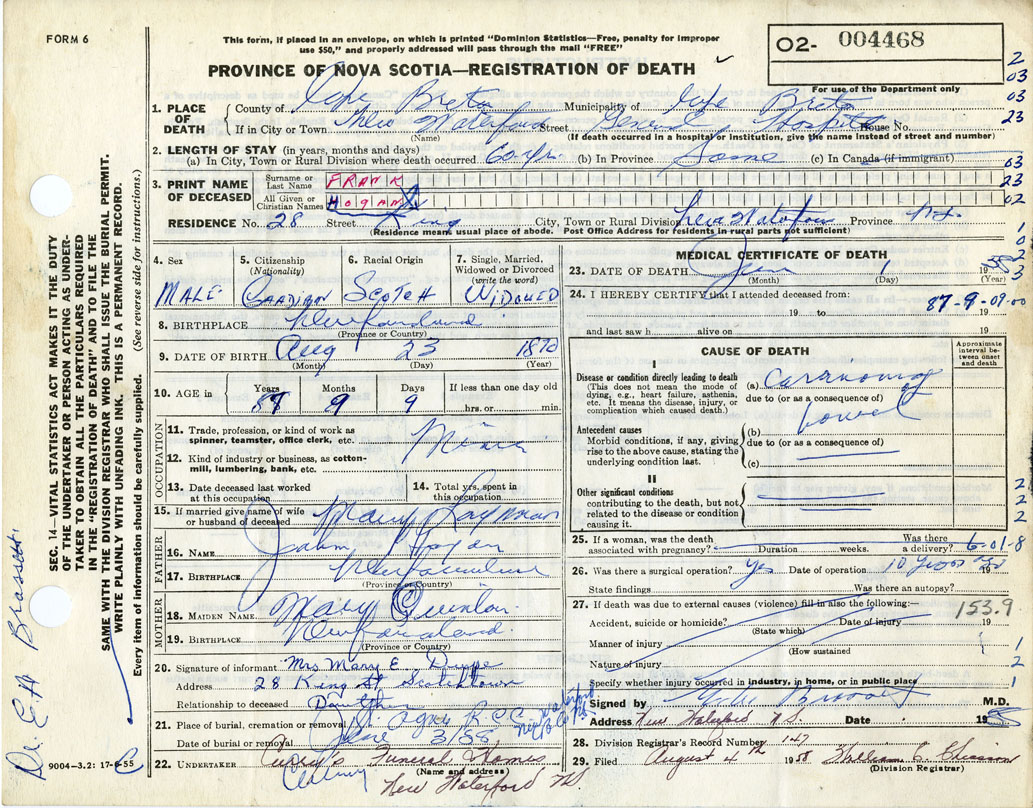 FORM 6
This form, if placed in an envelope, on which is printed "Dominion Statistics—Free, penalty for improper
use $50," and properly addressed will pass through the mail "FREE"
O2- 004468
PROVINCE OF NOVA SCOTIA—REGISTRATION OF DEATH
For use of the Department only
1. PLACE OF DEATH County of Cape Breton Municipality of Cape Breton
If in City or Town New Waterford Street General Hospital House No.
(Name) (If death occurred in a hospital or institution, give the name instead of street and number)
2. LENGTH OF STAY (in years, months and days)
(a) In City, Town or Rural Division where death occurred 60 yrs. (b) In Province Same (c) In Canada (if immigrant)
3. PRINT NAME OF DECEASED Surname or Last Name FRANK
All Given or Christian Names HOGAN
RESIDENCE No. 28 Street King City, Town or Rural Division New Waterford Province N.S.
(Residence means usual place of abode. Post Office Address for residents in rural parts not sufficient)
4. Sex MALE
5. Citizenship (Nationality) CANADIAN
6. Racial Origin SCOTCH
7. Single, Married, Widowed or Divorced (write the word) WIDOWED
8. BIRTHPLACE Newfoundland
(Province or Country)
9. DATE OF BIRTH Aug 23 1870
(Month) (Day) (Year)
10. AGE in Years 87 Months 9 Days 9 If less than one day old hrs. or min.
OCCUPATION
11. Trade, profession, or kind of work as spinner, teamster, office clerk, etc. Miner
12. Kind of industry or business, as cotton-mill, lumbering, bank, etc.
13. Date deceased last worked at this occupation
14. Total yrs. spent in this occupation
15. If married give name of wife or husband of deceased Mary
FATHER
16. NAME John Hogan
17. BIRTHPLACE Newfoundland
(Province or Country)
MOTHER
18. MAIDEN NAME Mary Quinlan
19. BIRTHPLACE Newfoundland
(Province or Country)
20. Signature of informant Mrs Mary E.
Address 28 King St Scotchtown
Relationship to deceased Daughter
21. Place of burial, cremation or removal St. Agnes R.C.C. New Waterford
Date of burial or removal June 3/58
22. UNDERTAKER Curry's Funeral Homes
(Name and address)
New Waterford N.S.
MEDICAL CERTIFICATE OF DEATH
23. DATE OF DEATH June 1 1958
(Month) (Day) (Year)
24. I HEREBY CERTIFY that I attended deceased from:
19 to 19
87-9-09-00
and last saw h alive on 19
CAUSE OF DEATH
Approximate interval between onset and death
I
Disease or condition directly leading to death
(This does not mean the mode of dying, e.g., heart failure, asthenia, etc. It means the disease, injury, or complication which caused death.)
(a) Carcinoma
due to (or as a consequence of)
Antecedent causes
Morbid conditions, if any, giving rise to the above cause, stating the underlying condition last.
(b) bowel
due to (or as a consequence of)
(c)
II
Other significant conditions contributing to the death, but not related to the disease or condition causing it.
25. If a woman, was the death associated with pregnancy? Duration weeks. Was there a delivery? 6-01-8
26. Was there a surgical operation? Yes Date of operation 10 years ago 19
State findings Was there an autopsy?
27. If death was due to external causes (violence) fill in also the following:— 153.9
Accident, suicide or homicide? Date of injury 19
(State which)
Manner of injury
(How sustained
Nature of injury
Specify whether injury occurred in industry, in home, or in public place
Signed by M.D.
Address New Waterford N.S. Date 1958
28. Division Registrar's Record Number 147
29. Filed August 4 1958 William
(Division Registrar)
SEC. 14—VITAL STATISTICS ACT MAKES IT THE DUTY
OF THE UNDERTAKER OR PERSON ACTING AS UNDER-
TAKER TO OBTAIN ALL THE PARTICULARS REQUIRED
IN THE "REGISTRATION OF DEATH" AND TO FILE THE
SAME WITH THE DIVISION REGISTRAR WHO SHALL ISSUE THE BURIAL PERMIT.
WRITE PLAINLY WITH UNFADING INK. THIS IS A PERMANENT RECORD.
Every item of information should be carefully supplied. (See reverse side for instructions.)
Dr. E.A Brassett
9004—3.2: 17-6-55